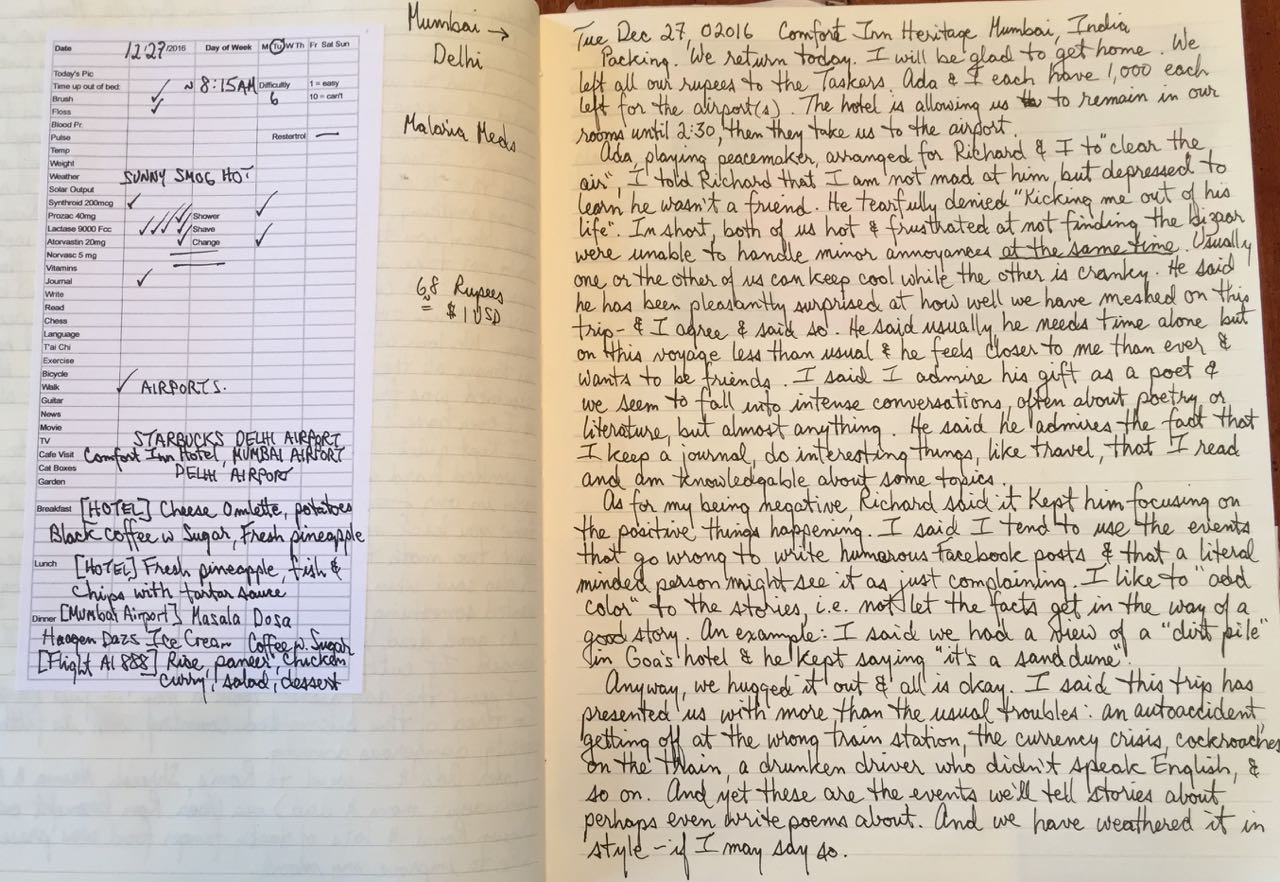 Date 12/27/2016 Day of Week M Tu W Th Fr Sat Sun
Today's Pic
Time up out of bed: ~ 8:15AM Difficulty 1 = easy
Brush 6 10 = can't
Floss
Blood Pr.
Pulse Restertrol —
Temp
Weight
Weather SUNNY SMOG HOT
Solar Output
Synthroid 200mcg
Prozac 40mg Shower
Lactase 9000 Fcc Shave
Atorvastin 20mg Change
Norvasc 5 mg
Vitamins
Journal
Write
Read
Chess
Language
T'ai Chi
Exercise
Bicycle
Walk AIRPORTS.
Guitar
News
Movie
TV STARBUCKS DELHI AIRPORT
Cafe Visit Comfort Inn Hotel, MUMBAI AIRPORT
Cat Boxes DELHI AIRPORT
Garden
Breakfast [HOTEL] Cheese Omlette, potatoes
Black coffee w Sugar, Fresh pineapple
Lunch [HOTEL] Fresh pineapple, fish &
Chips with tartar sauce
Dinner [Mumbai Airport] Masala Dosa
Haagen Dazs Ice Cream Coffee w. Sugar
[Flight AI 888] Rise, paneer, Chicken
curry, salad, dessert
Mumbai →
Delhi
Malaria Meds
68 Rupees
≈ $1 USD
Tue Dec 27, 02016 Comfort Inn Heritage Mumbai, India
Packing. We return today. I will be glad to get home. We
left all our rupees to the Taskers. Ada & I each have 1,000 each
left for the airport(s). The hotel is allowing us to remain in our
rooms until 2:30, then they take us to the airport.
Ada, playing peacemaker, arranged for Richard & I to "clear the
air", I told Richard that I am not mad at him, but depressed to
learn he wasn't a friend. He tearfully denied "Kicking me out of his
life". In short, both of us hot & frustrated at not finding the bizaar
were unable to handle minor annoyances at the same time. Usually
one or the other of us can keep cool while the other is cranky. He said
he has been pleasantly surprised at how well we have meshed on this
trip - & I agree & said so. He said usually he needs time alone but
on this voyage less than usual & he feels closer to me than ever &
wants to be friends. I said I admire his gift as a poet &
we seem to fall into intense conversations, often about poetry or
literature, but almost anything. He said he admires the fact that
I keep a journal, do interesting things, like travel, that I read
and am knowledgable about some topics.
As for my being negative Richard said it kept him focusing on
the positive things happening. I said I tend to use the events
that go wrong to write humorous Facebook posts & that a literal
minded person might see it as just complaining. I like to "add
color" to the stories, i.e. not let the facts get in the way of a
good story. An example: I said we had a view of a "dirt pile"
in Goa's hotel & he kept saying "it's a sand dune".
Anyway, we hugged it out & all is okay. I said this trip has
presented us with more than the usual troubles: an autoaccident,
getting off at the wrong train station, the currency crisis, cockroaches
on the train, a drunken driver who didn't speak English, &
so on. And yet these are the events we'll tell stories about
perhaps even write poems about. And we have weathered it in
style - if I may say so.